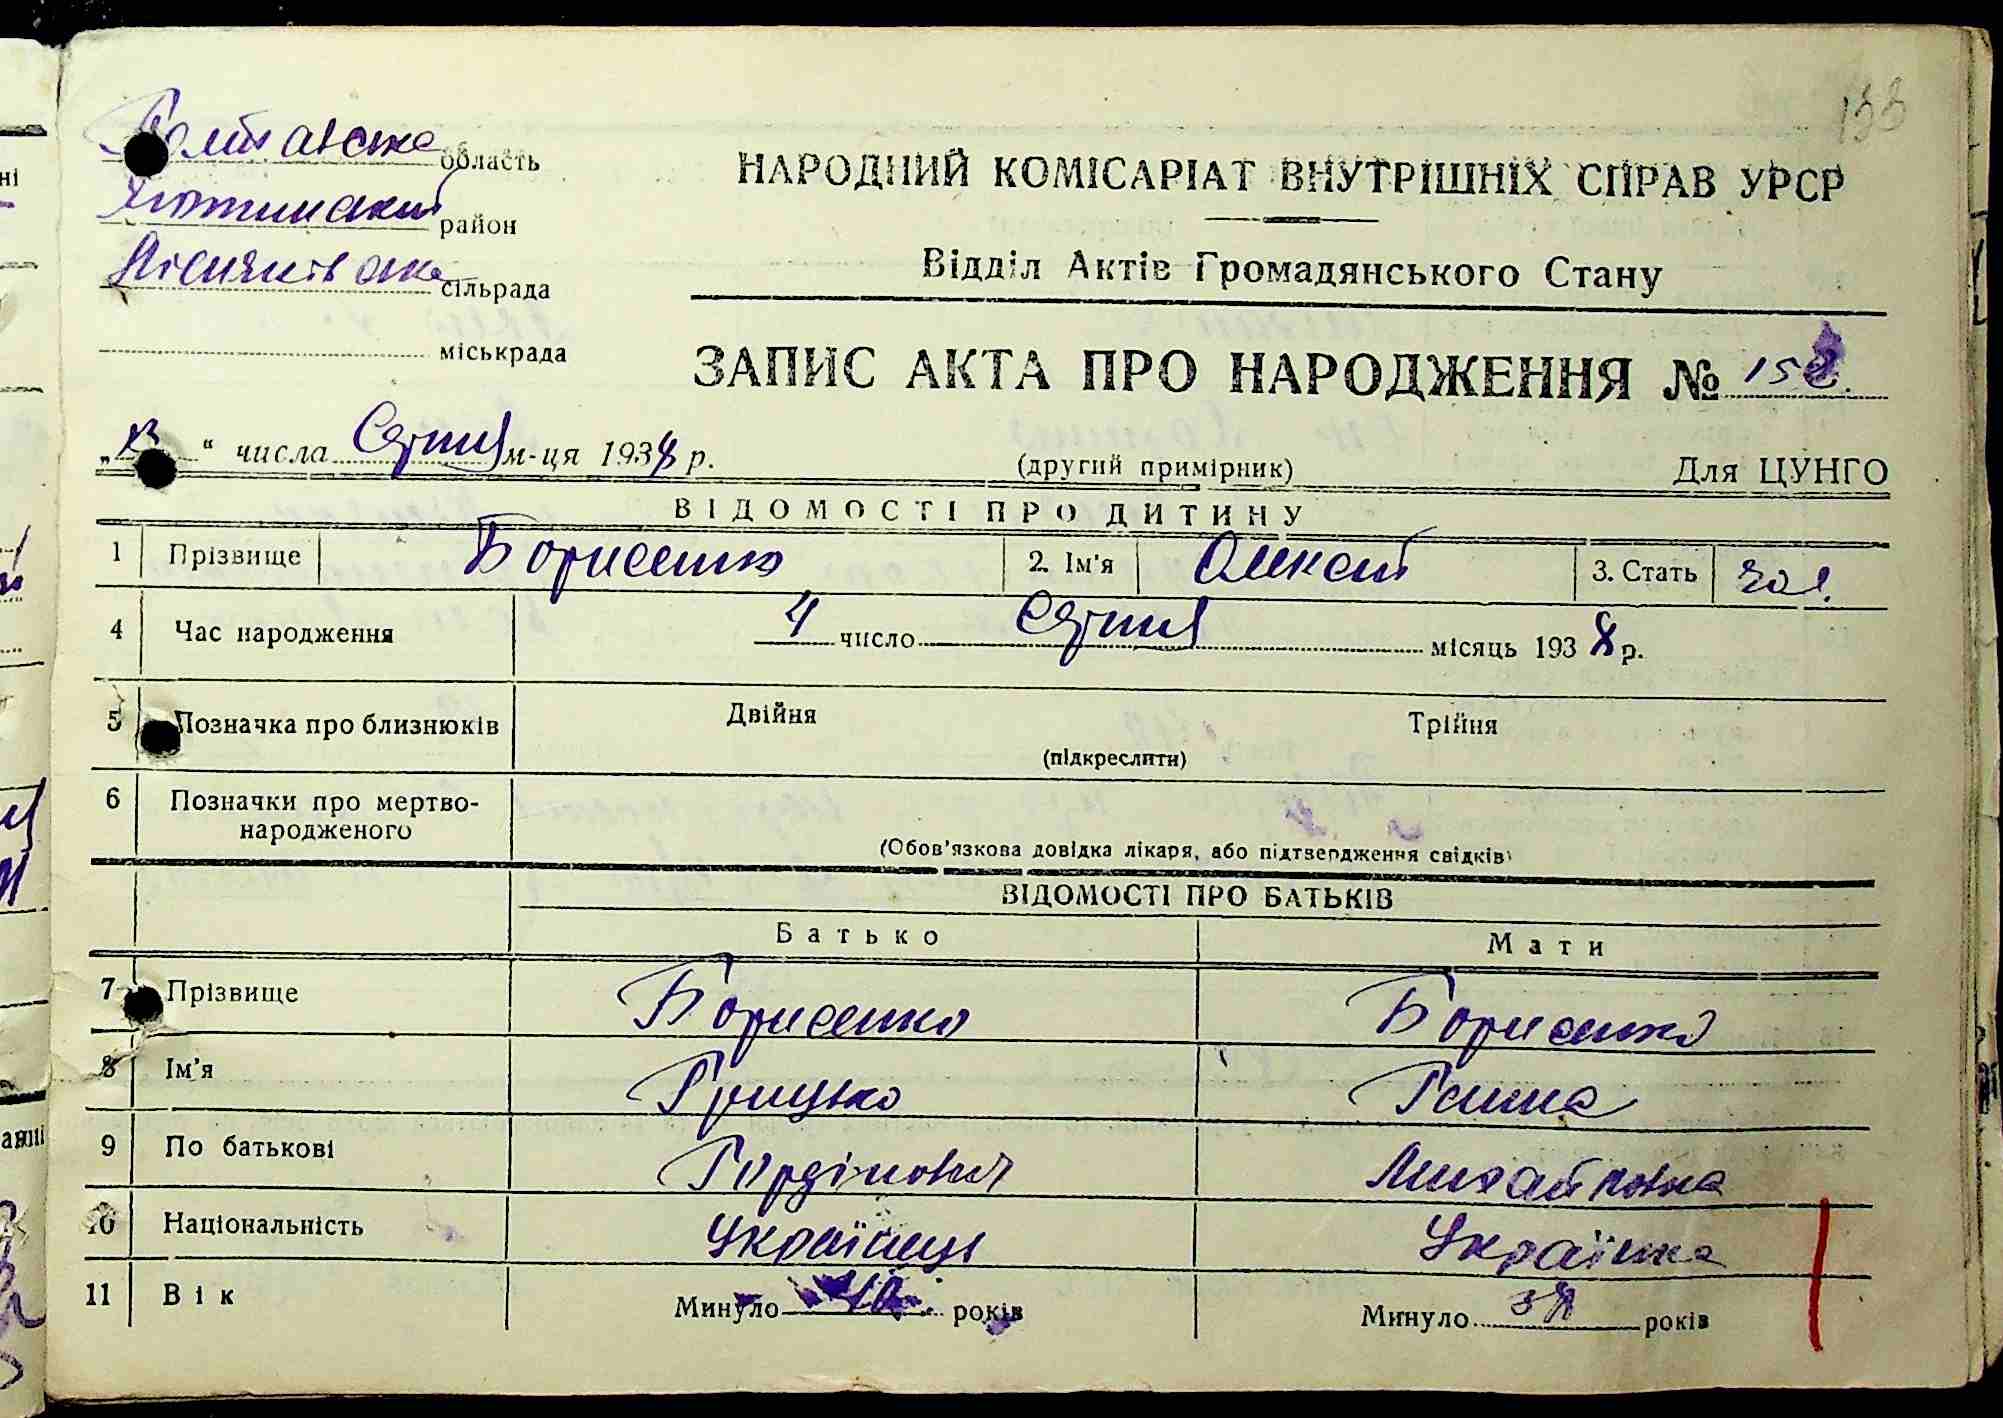 133
Полтавська область
Хорольський район
сільрада
міськрада
НАРОДНИЙ КОМІСАРІАТ ВНУТРІШНІХ СПРАВ УРСР
Відділ Актів Громадянського Стану
ЗАПИС АКТА ПРО НАРОДЖЕННЯ № 153.
" числа Серпня м-ця 1938 р.
(другий примірник) Для ЦУНГО
ВІДОМОСТІ ПРО ДИТИНУ
1 Прізвище Борисенко 2. Ім'я Олексій 3. Стать чол.
4 Час народження 4 число Серпня місяць 1938 р.
5 Позначка про близнюків Двійня Трійня
(підкреслити)
6 Позначки про мертво-
народженого
(Обов'язкова довідка лікаря, або підтвердження свідків)
ВІДОМОСТІ ПРО БАТЬКІВ
Батько Мати
7 Прізвище Борисенко Борисенко
8 Ім'я Грицько Ганна
9 По батькові Гордійович Михайловна
10 Національність Українець Українка
11 Вік Минуло 40 років Минуло 38 років